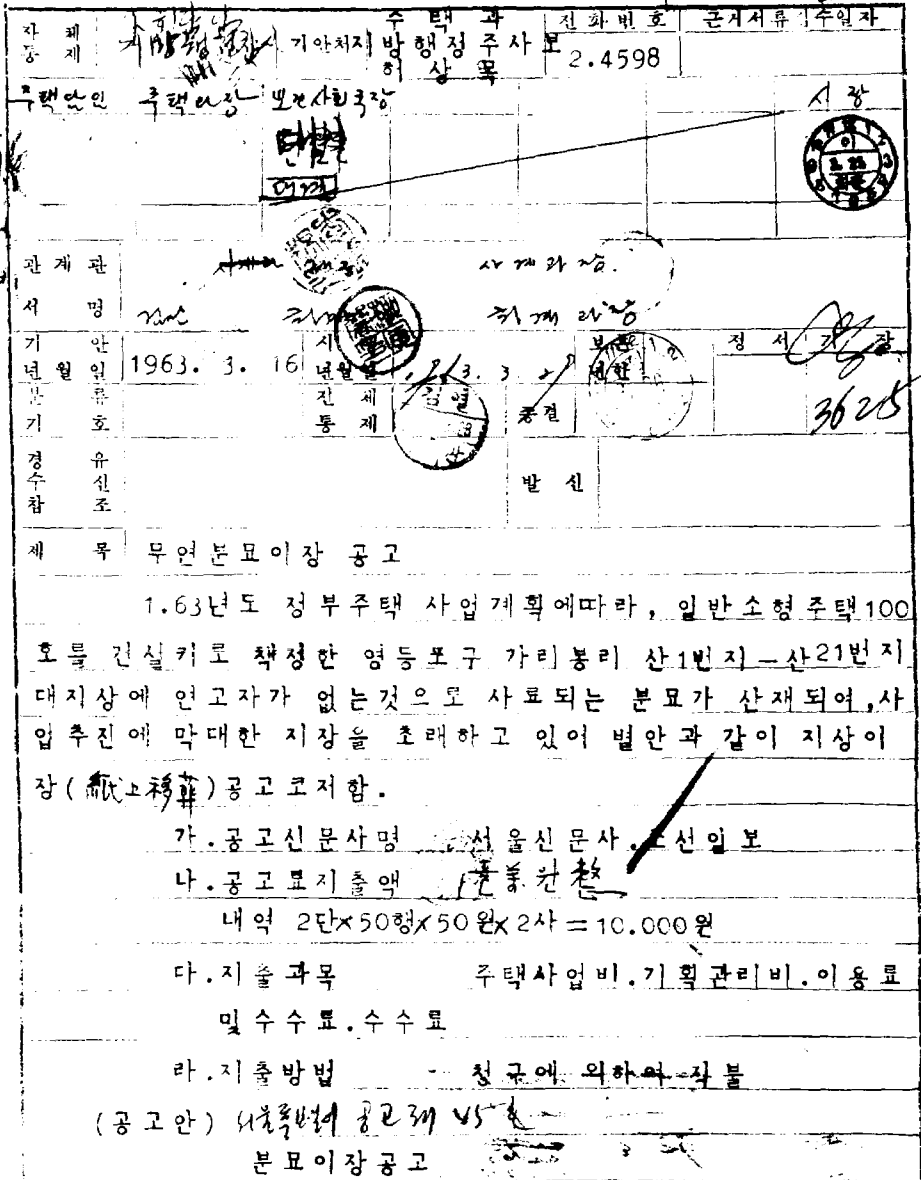 자체 통제 기안처 주택과 전화번호 근거서류 접수일자
지방행정주사보
허상묵 2.4598
주택과장 보건사회국장 시장
관계관
서명
기안
년월일 1963. 3. 16 시행
년월일 보존
년한 정서 기장
분류
기호 전체
통제 종결 3625
경유
수신
참조 발신
제목 무연분묘이장 공고
1.63년도 정부주택 사업계획에따라, 일반소형주택100
호를 건실키로 책정한 영등포구 가리봉리 산1번지—산21번지
대지상에 연고자가 없는것으로 사료되는 분묘가 산재되여,사
업추진에 막대한 지장을 초래하고 있어 별안과 같이 지상이
장(紙上移葬)공고코저함.
가.공고신문사명 서울신문사.조선일보
나.공고료지출액 壹萬원整
내역 2단×50행×50원×2사=10.000원
다.지출과목 주택사업비.기획관리비.이용료
및수수료.수수료
라.지출방법 - 청구에 의하여 직불
(공고안) 서울특별시 공고제 45호
분묘이장공고